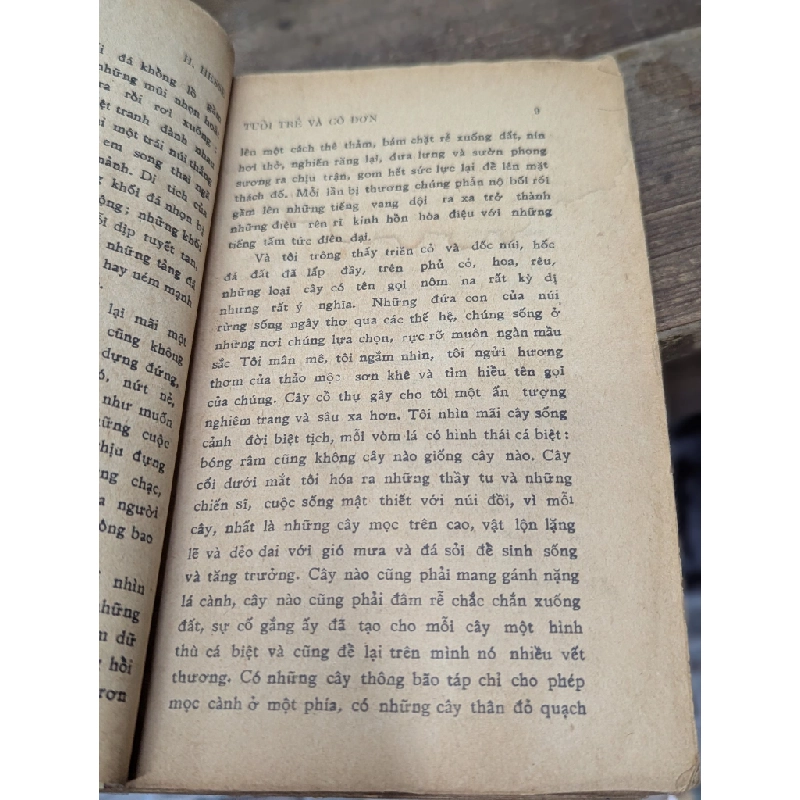 H. HESSE
đá khổng lồ gầm
những mũi nhọn hoắt
ra rồi rơi xuống:
tranh đánh nhau
một trái núi thẳng
em song thai ngã
mảnh. Di tích của
khối đá nhọn bị
động; những khối
dịp tuyết tan,
những tảng đá
hay ném mạnh
lại mãi một
cũng không
dựng đứng,
nứt nẻ,
như muốn
những cuộc
chịu đựng
chạc,
người
không bao
nhìn
những
dữ
hồi
TUỔI TRẺ VÀ CÔ ĐƠN 9
lên một cách thê thảm, bám chặt rễ xuống đất, nín
hơi thở, nghiến răng lại, đưa lưng và sườn phong
sương ra chịu trận, gom hết sức lực lại để lên mặt
thách đố. Mỗi lần bị thương chúng phẫn nộ bối rối
gầm lên những tiếng vang dội ra xa trở thành
những điệu rên rỉ kinh hồn hòa điệu với những
tiếng tấm tức điên dại.
Và tôi trông thấy triền cỏ và dốc núi, hốc
đá đất đã lấp đầy, trên phủ cỏ, hoa, rêu,
những loại cây có tên gọi nôm na rất kỳ dị
nhưng rất ý nghĩa. Những đứa con của núi
rừng sống ngây thơ qua các thế hệ, chúng sống ở
những nơi chúng lựa chọn, rực rỡ muôn ngàn mầu
sắc Tôi mân mê, tôi ngắm nhìn, tôi ngửi hương
thơm của thảo mộc sơn khê và tìm hiểu tên gọi
của chúng. Cây cồ thụ gây cho tôi một ấn tượng
nghiêm trang và sâu xa hơn. Tôi nhìn mãi cây sống
cảnh đời biệt tịch, mỗi vòm lá có hình thái cá biệt:
bóng râm cũng không cây nào giống cây nào. Cây
cối dưới mắt tôi hóa ra những thầy tu và những
chiến sĩ, cuộc sống mật thiết với núi đồi, vì mỗi
cây, nhất là những cây mọc trên cao, vật lộn lặng
lẽ và dẻo dai với gió mưa và đá sỏi để sinh sống
và tăng trưởng. Cây nào cũng phải mang gánh nặng
lá cành, cây nào cũng phải đâm rễ chắc chắn xuống
đất, sự cố gắng ấy đã tạo cho mỗi cây một hình
thù cá biệt và cũng để lại trên mình nó nhiều vết
thương. Có những cây thông bão táp chỉ cho phép
mọc cành ở một phía, có những cây thân đỏ quạch